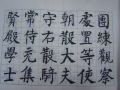 團練觀察
處置等使
朝散大夫
守右散騎
常侍充集
賢殿學士